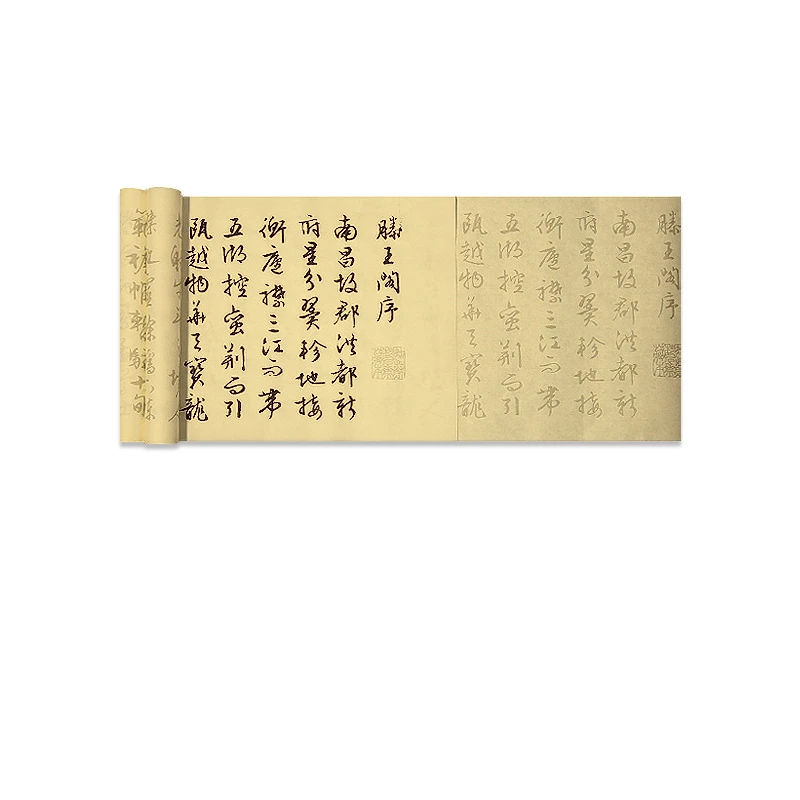 滕王閣序
南昌故郡洪都新
府星分翼軫地接
衡廬襟三江而帶
五湖控蠻荊而引
甌越物華天寶龍
滕王閣序
南昌故郡洪都新
府星分翼軫地接
衡廬襟三江而帶
五湖控蠻荊而引
甌越物華天寶龍